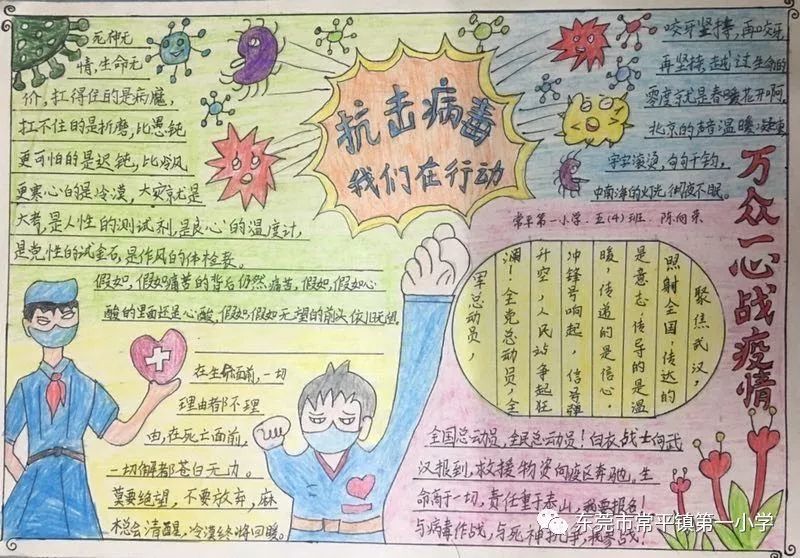 死神无
情,生命无
价,扛得住的是病魔,
扛不住的是折磨,比愚钝
更可怕的是迟钝,比冷风
更寒心的是冷漠,大灾就是
大考,是人性的测试剂,是良心的温度计,
是党性的试金石,是作风的体检表。
假如,假如痛苦的背后仍然痛苦,假如,假如心
酸的里面还是心酸,假如,假如无望的前头依旧无望
在生命面前,一切
理由都不理
由,在死亡面前,
一切解都苍白无力。
莫要绝望,不要放弃,麻
木总会清醒,冷漠终将回暖。
抗击病毒
我们在行动
咬牙坚持,再咬牙
再坚持,越过生命的
零度就是春暖花开啊,
北京的声音温暖
字字滚烫,句句千钧,
中南海的灯光彻夜不眠。
常平第一小学 五(4)班
万众一心战疫情
聚焦武汉,
照射全国,传达的
是意志,传导的是温
暖,传递的是信心,
冲锋号响起,信号弹
升空,人民战争起狂
澜!全党总动员,全
军总动员,
全国总动员,全民总动员!白衣战士向武
汉报到,救援物资向疫区奔驰,生
命高于一切,责任重于泰山,我要报名!
与病毒作战,与死神抗争,我参战!
东莞市常平镇第一小学